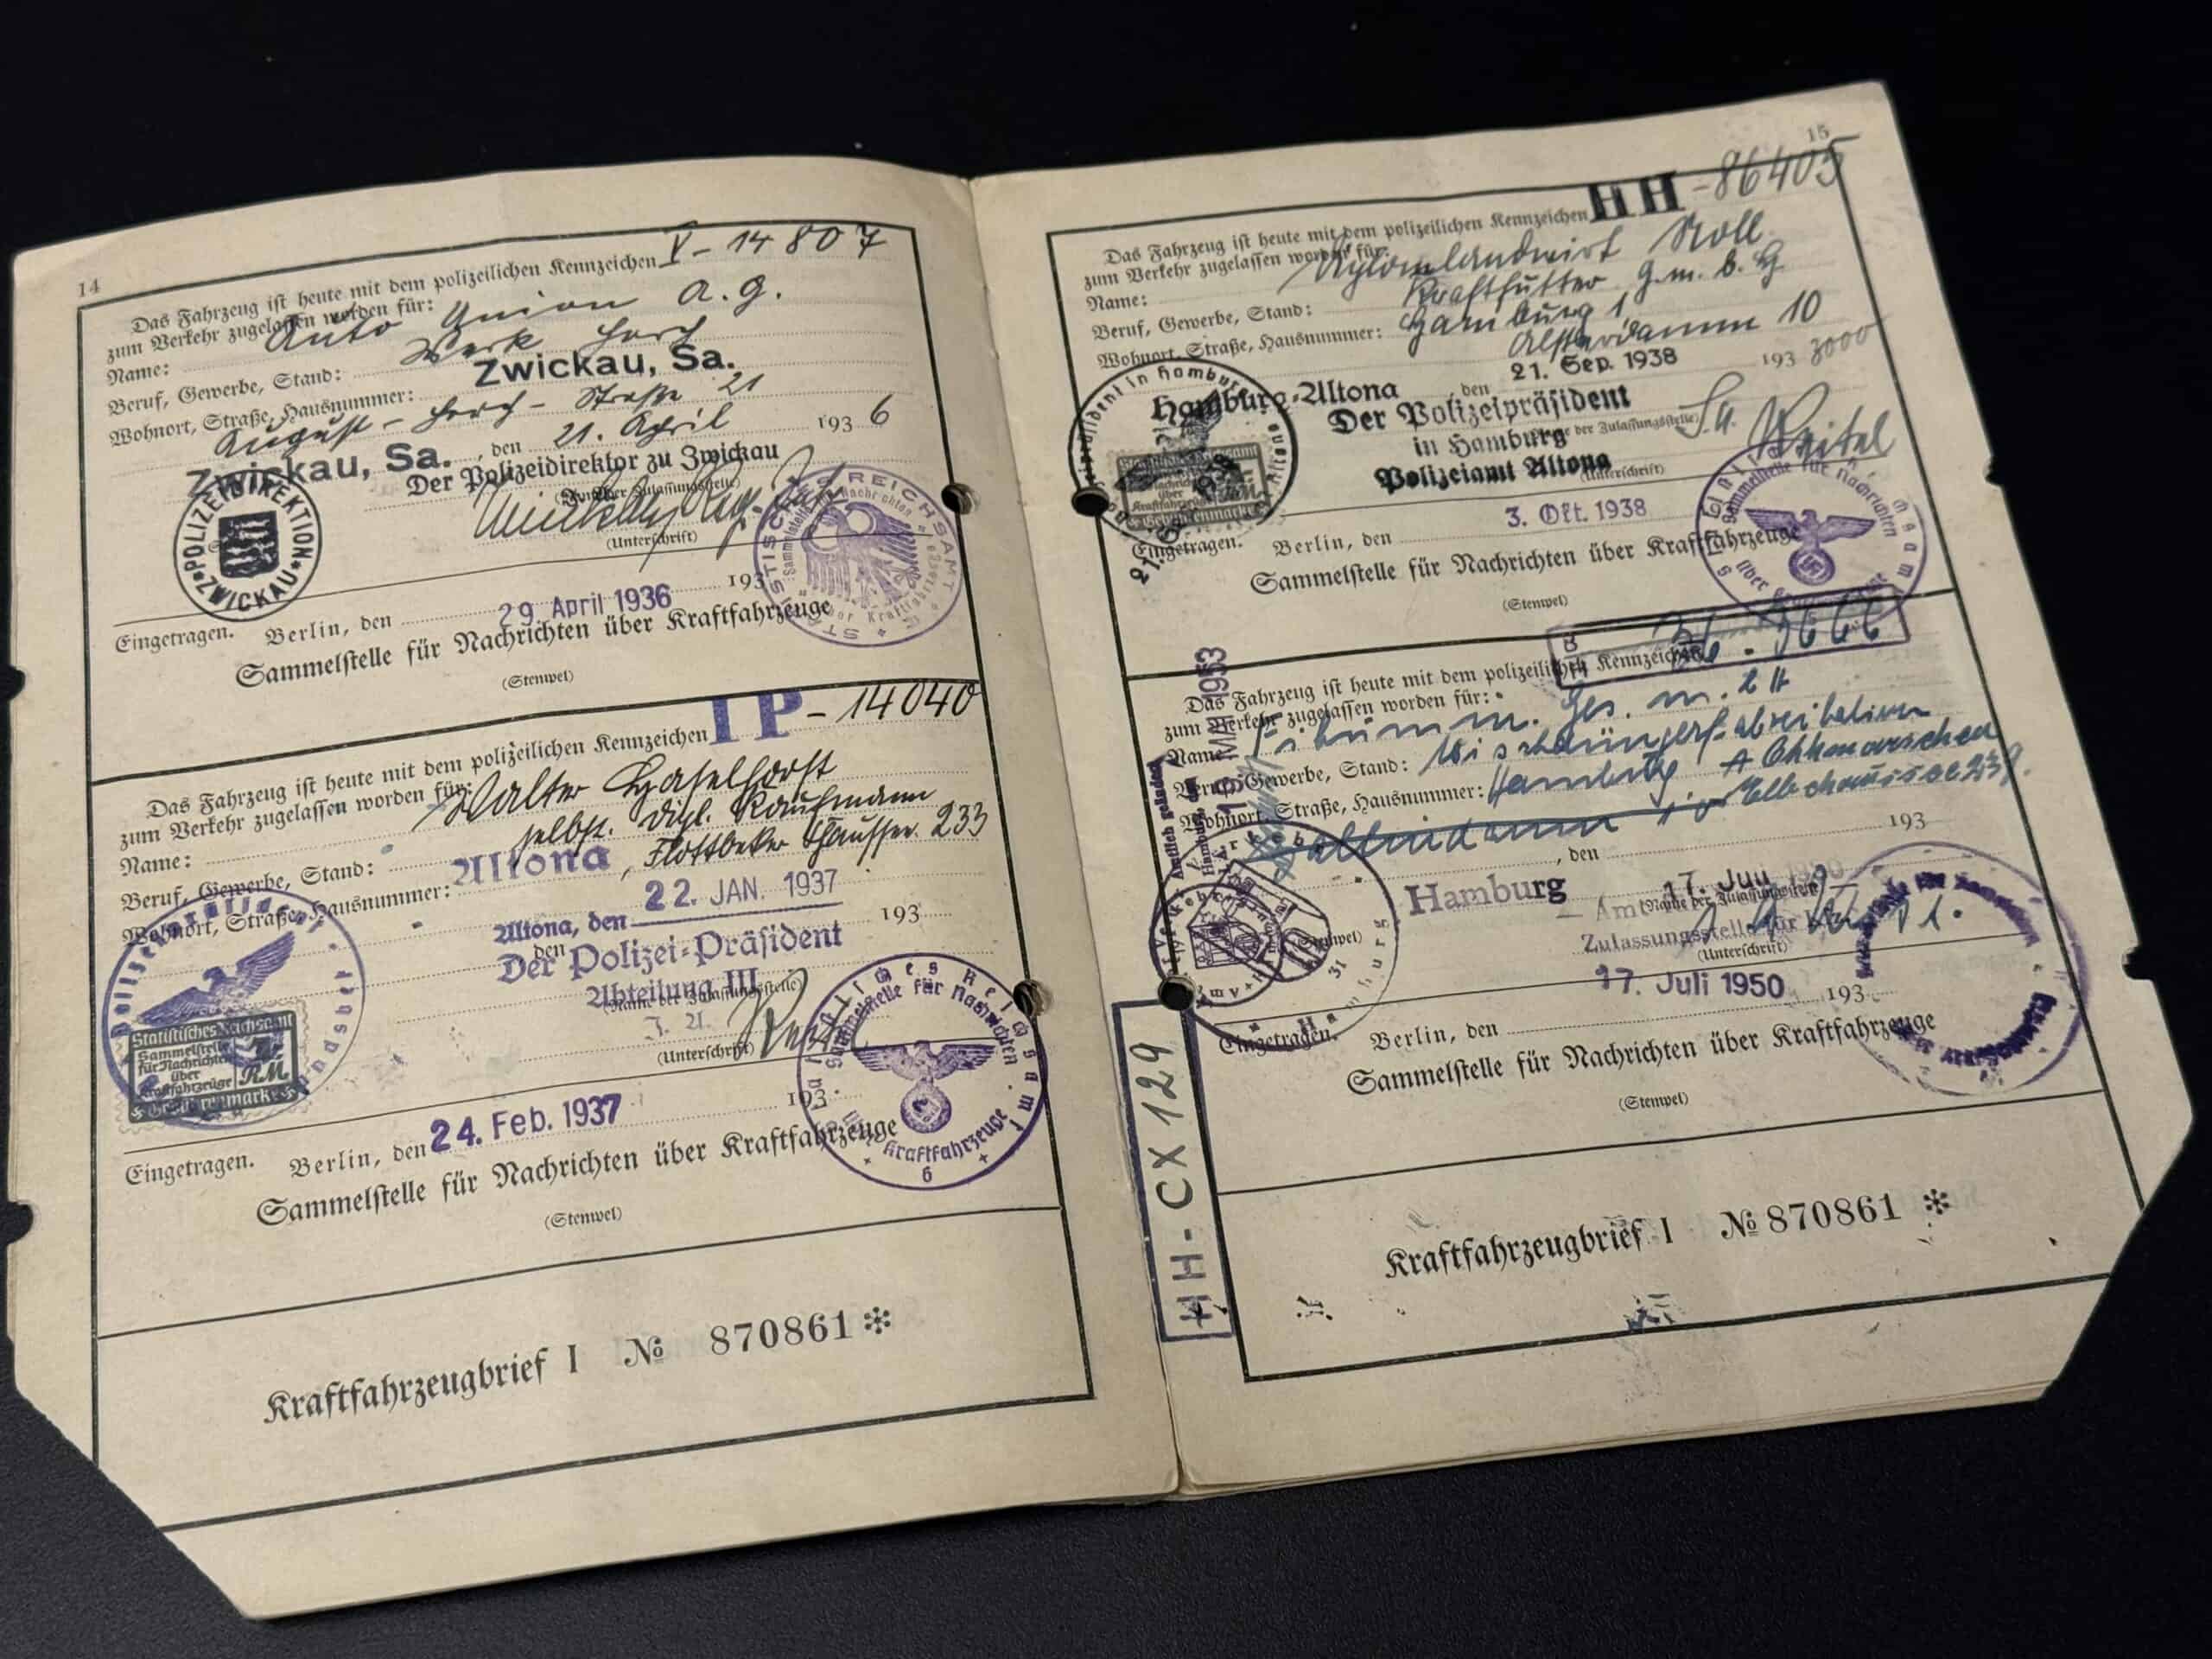 14
Das Fahrzeug ist heute mit dem polizeilichen Kennzeichen V - 14807
zum Verkehr zugelassen worden für:
Name: Auto Union A.G.
Beruf, Gewerbe, Stand: Werk Horch
Zwickau, Sa.
Wohnort, Straße, Hausnummer:
August-Horch-Straße 21
Zwickau, Sa., den 21. April 1936
Der Polizeidirektor zu Zwickau
(Name der Zulassungsstelle)
(Unterschrift)
POLIZEIDIREKTION ZWICKAU
STATISTISCHES REICHSAMT
Eingetragen. Berlin, den 29. April 1936 193
Sammelstelle für Nachrichten über Kraftfahrzeuge
(Stempel)
Das Fahrzeug ist heute mit dem polizeilichen Kennzeichen IP - 14040
zum Verkehr zugelassen worden für:
Name: Walter Haselhorst
Beruf, Gewerbe, Stand: selbst. Dipl. Kaufmann
Wohnort, Straße, Hausnummer: Altona, Flottbeker Chaussee 233
Altona, den 22. JAN. 1937
den 193
Der Polizei-Präsident
Abteilung III
(Name der Zulassungsstelle)
J. A.
(Unterschrift)
Statistisches Reichsamt
Sammelstelle
für Nachrichten
über
Kraftfahrzeuge
RM
Gebührenmarke
Statistisches Reichsamt
Sammelstelle für Nachrichten
über Kraftfahrzeuge
6
Eingetragen. Berlin, den 24. Feb. 1937 193
Sammelstelle für Nachrichten über Kraftfahrzeuge
(Stempel)
Kraftfahrzeugbrief I № 870861 *
15
Das Fahrzeug ist heute mit dem polizeilichen Kennzeichen HH - 86405
zum Verkehr zugelassen worden für:
Name: Diplomlandwirt Noll
Beruf, Gewerbe, Stand: Kraftfutter G.m.b.H
Wohnort, Straße, Hausnummer: Hamburg 1,
Alsterdamm 10
Hamburg-Altona den 21. Sep. 1938 193
Der Polizeipräsident
in Hamburg
(Name der Zulassungsstelle)
Polizeiamt Altona
(Unterschrift)
Eingetragen. Berlin, den 3. Okt. 1938
Sammelstelle für Nachrichten über Kraftfahrzeuge
(Stempel)
Das Fahrzeug ist heute mit dem polizeilichen Kennzeichen
zum Verkehr zugelassen worden für:
Name: Ges. m. b H
Beruf, Gewerbe, Stand:
Wohnort, Straße, Hausnummer: Hamburg Othmarschen
Elbchaussee 239.
Ballindamm
, den 193
Hamburg 17. Juli 1950
Amt
(Name der Zulassungsstelle)
Zulassungsstelle für
(Unterschrift)
17. Juli 1950 193
Eingetragen. Berlin, den
Sammelstelle für Nachrichten über Kraftfahrzeuge
(Stempel)
HH - CX 129
Kraftfahrzeugbrief I № 870861 *